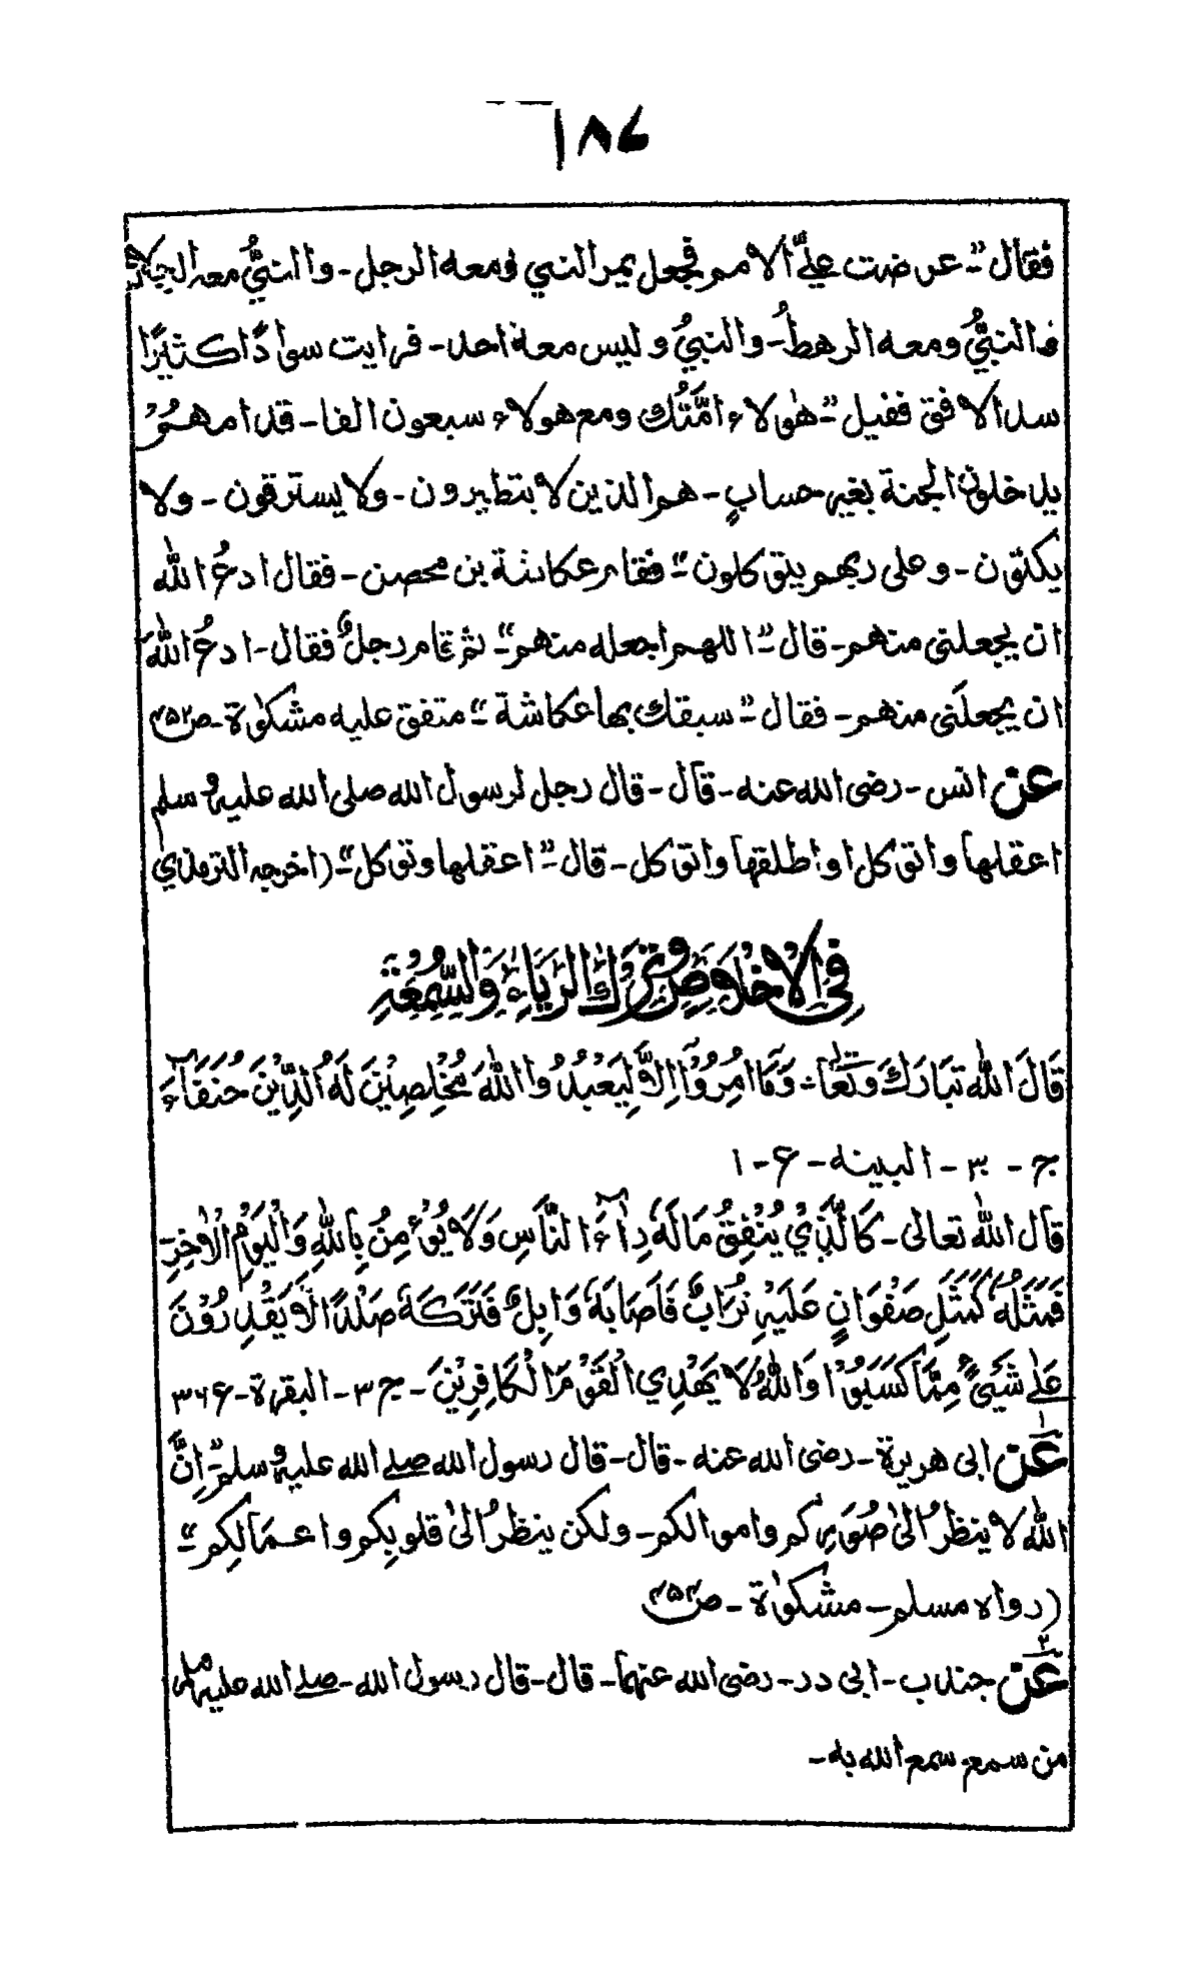 ۱۸۷
فقال " عرضت عليّ الامم فجعل يمر النبي ومعه الرجل - والنبيُّ معه الرجلان
والنبيُّ ومعه الرهطُ - والنبيُّ وليس معهٗ احد - فرايت سوادًا كثيرًا
سد الافق فقيل " هٰولاء امّتُك ومع هولاء سبعون الفا - قدامهمُ
يدخلون الجنة بغير حسابٍ - هم الذين لا يتطيرون - ولا يسترقون - ولا
يكتوون - وعلى ربهم يتوكلون " فقام عكاشة بن محصن - فقال ادعُ الله
ان يجعلنى منهم - قال " اللهم اجعله منهم " ثم قام رجلٌ فقال - ادعُ اللهَ
ان يجعلَنى منهم - فقال " سبقك بها عكاشة " متفق عليه مشكوٰة - ص۴۵۲
عن انس - رضى الله عنه - قال - قال رجل لرسول الله صلى الله عليه وسلم
اعقلها واتوكل او اطلقها واتوكل - قال " اعقلها وتوكل " (اخرجه الترمذي
فِى الْاِخْلَاصِ وَتَرْكِ الرِّيَاءِ وَالسُّمْعَةِ
قَالَ اللهُ تَبَارَكَ وَتَعَالٰى - وَمَا اُمِرُوْۤا اِلَّا لِيَعْبُدُوا اللهَ مُخْلِصِيْنَ لَهُ الدِّيْنَ حُنَفَآءَ
ج - ۳ - البينه - ۶ - ۱
قال الله تعالى - كَالَّذِيْ يُنْفِقُ مَالَهٗ رِئَآءَ النَّاسِ وَلَا يُؤْمِنُ بِاللهِ وَالْيَوْمِ الْاٰخِرِ -
فَمَثَلُهٗ كَمَثَلِ صَفْوَانٍ عَلَيْهِ تُرَابٌ فَاَصَابَهٗ وَابِلٌ فَتَرَكَهٗ صَلْدًا لَا يَقْدِرُوْنَ
عَلٰى شَيْئٍ مِّمَّا كَسَبُوْا وَاللهُ لَا يَهْدِي الْقَوْمَ الْكَافِرِيْنَ - ج۳ - البقرة - ۳۶۶
۱ عَن ابى هريرة - رضى الله عنه - قال - قال رسول الله صلے الله عليه وسلم " اِنَّ
الله لا ينظرُ الىٰ صُوَرِكم واموالكم - ولكن ينظرُ الىٰ قلوبِكم واعمَالِكم "
(رواه مسلم - مشكوٰة - ص۴۵۴
۲ عَن جندب - ابى در - رضى الله عنهما - قال - قال رسول الله - صلے الله عليه وسلم
من سمع سمع الله به -